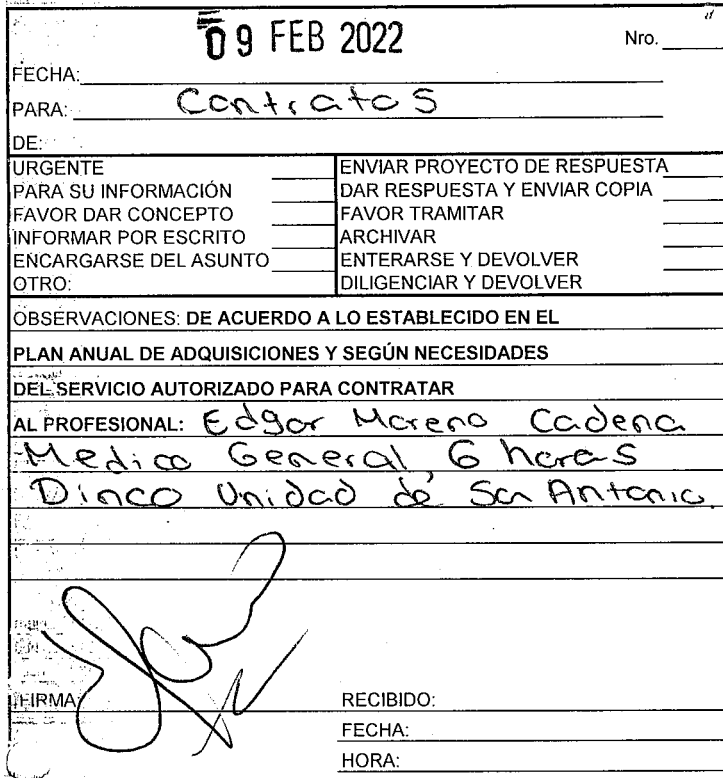 09 FEB 2022
Nro.
FECHA:
PARA: Contratos
DE:
URGENTE
PARA SU INFORMACIÓN
FAVOR DAR CONCEPTO
INFORMAR POR ESCRITO
ENCARGARSE DEL ASUNTO
OTRO:
ENVIAR PROYECTO DE RESPUESTA
DAR RESPUESTA Y ENVIAR COPIA
FAVOR TRAMITAR
ARCHIVAR
ENTERARSE Y DEVOLVER
DILIGENCIAR Y DEVOLVER
OBSERVACIONES: DE ACUERDO A LO ESTABLECIDO EN EL
PLAN ANUAL DE ADQUISICIONES Y SEGÚN NECESIDADES
DEL SERVICIO AUTORIZADO PARA CONTRATAR
AL PROFESIONAL: Edgar Moreno Cadena
Medico General, 6 horas
Unidad de San Antonio.
FIRMA
RECIBIDO:
FECHA:
HORA: